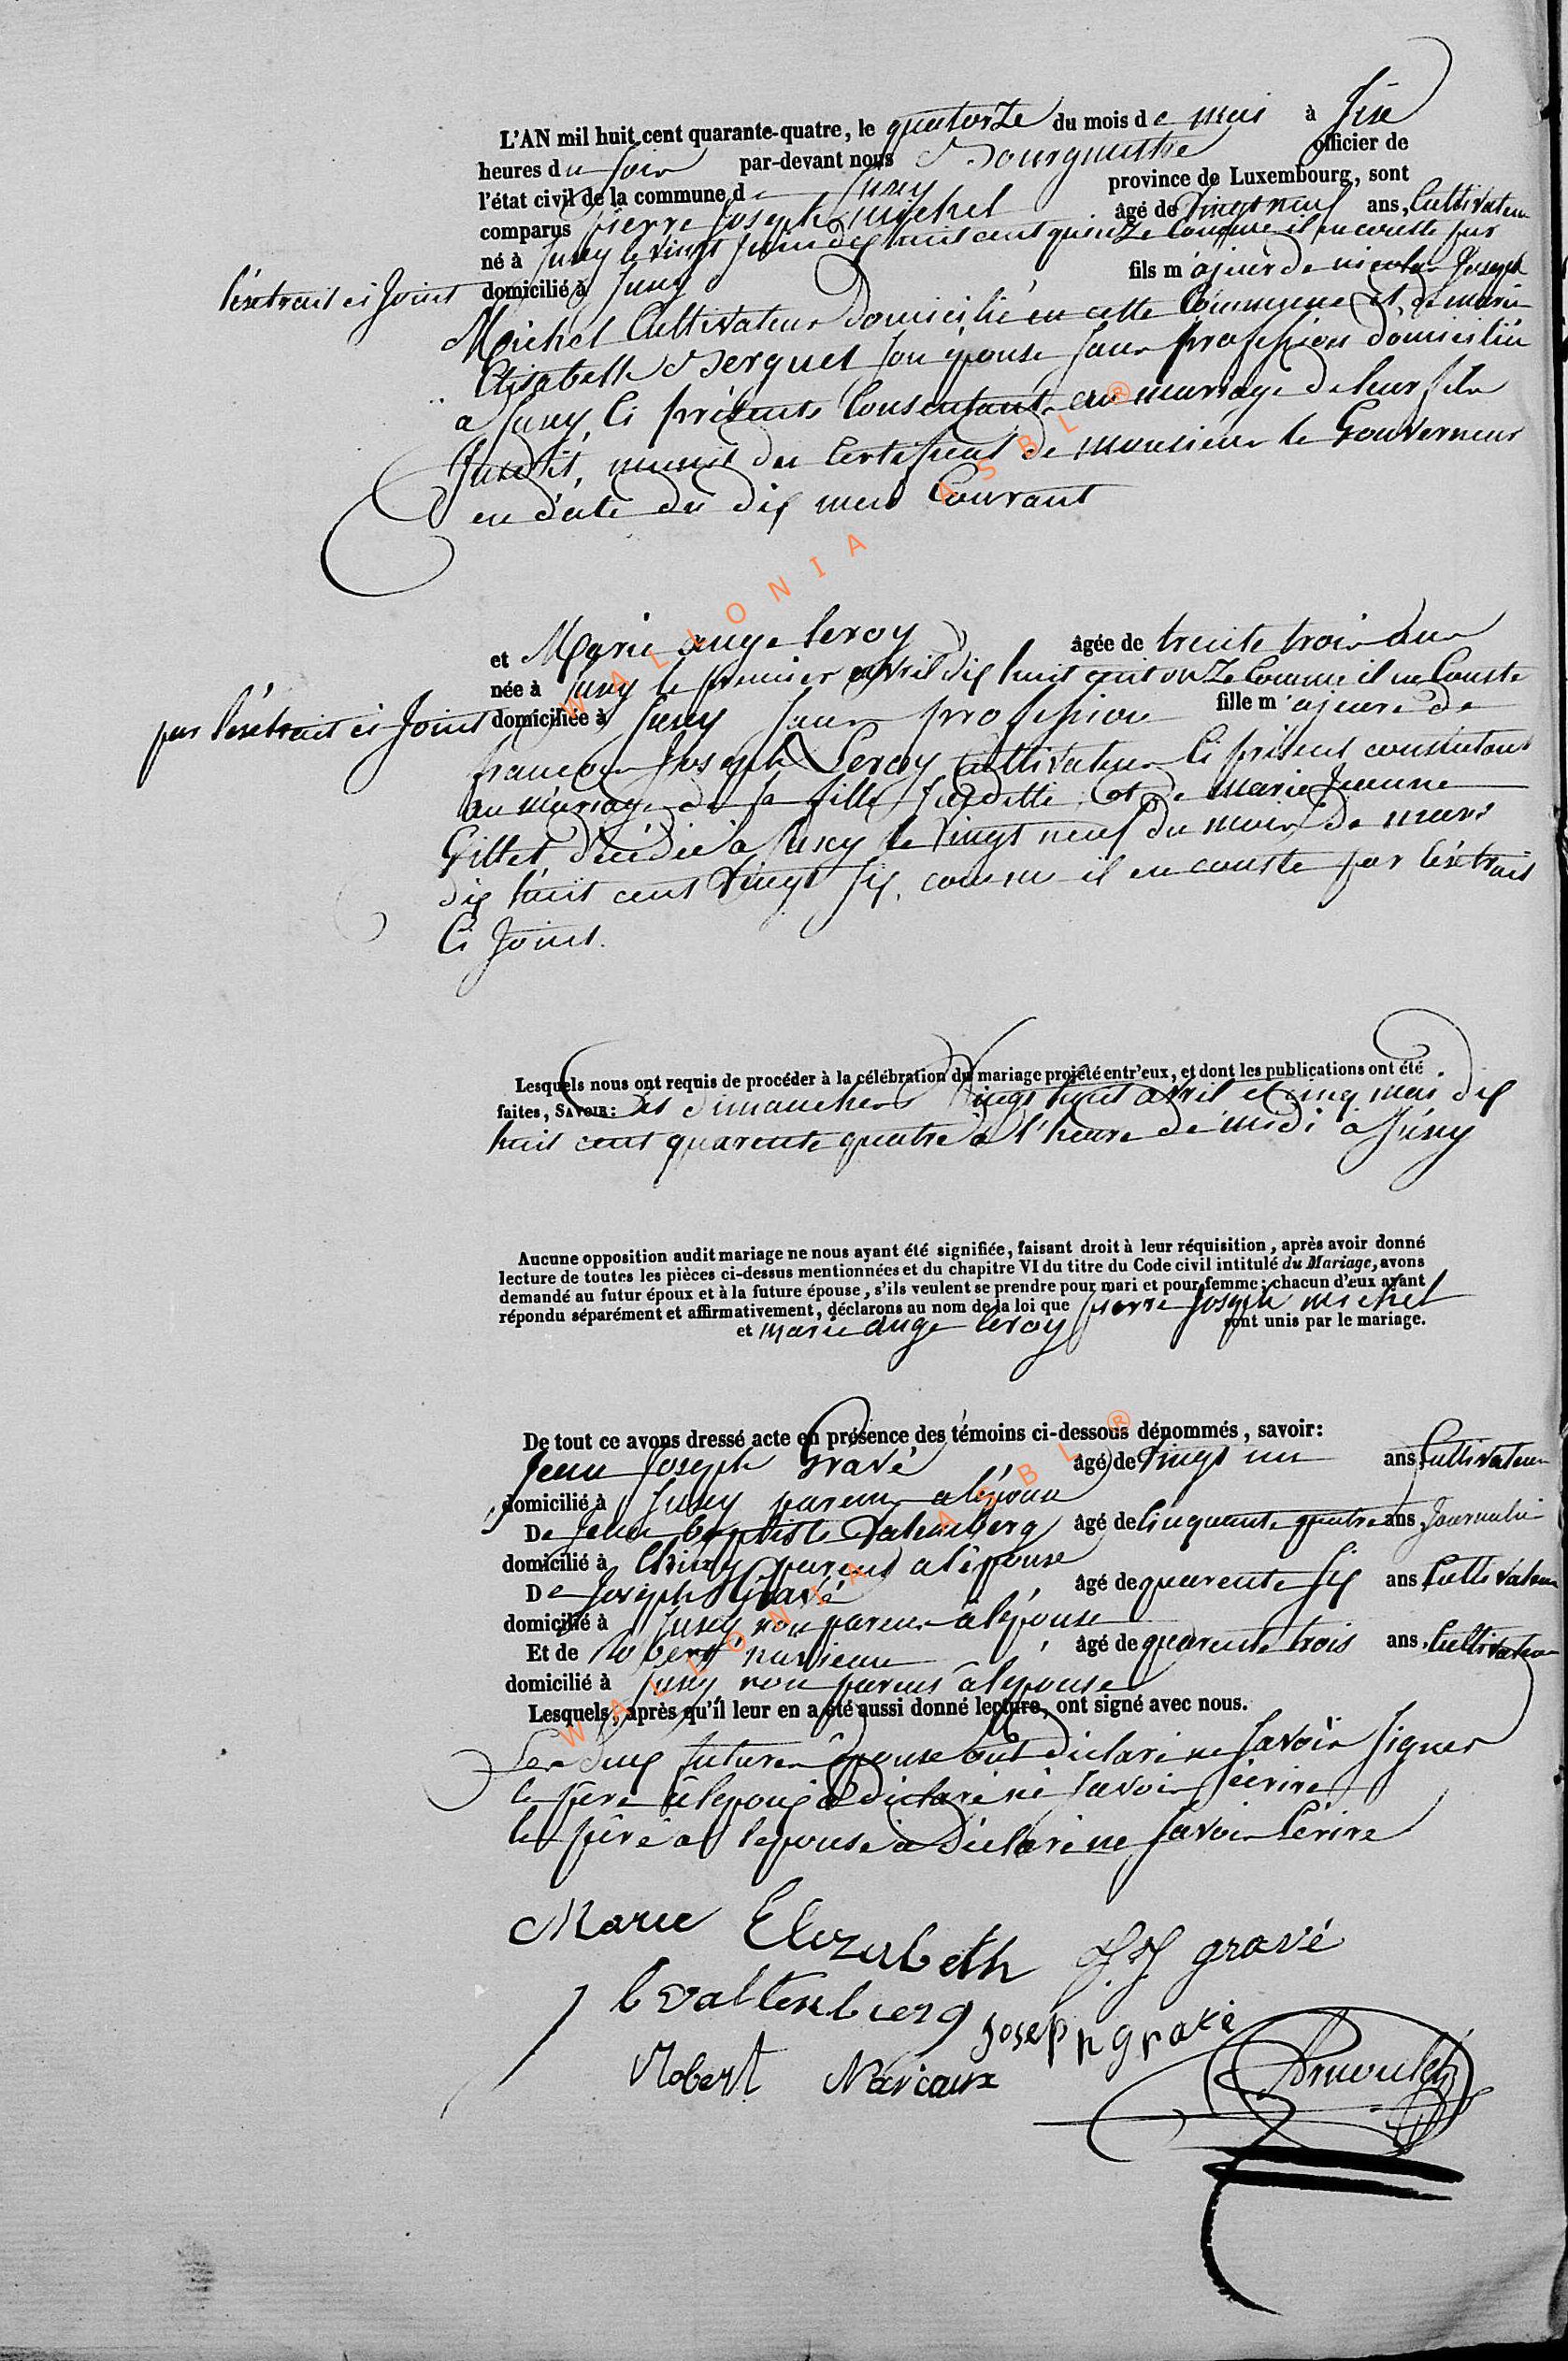 L'AN mil huit cent quarante-quatre, le quatorze du mois de mai à Six
heures du soir par-devant nous Bourgmestre officier de
l'état civil de la commune de Suxy province de Luxembourg, sont
comparus pierre Joseph michel âgé de Vingt neuf ans, Cultivateur
né à Suxy le vingt Juin dix huit cent quinze Comme il en conste par
l'éxtrait ci Joint domicilié à Suxy fils majeur de nicolas Joseph
Michel Cultivateur Domicilié en cette Commune et de marie
Elisabeth Serquet son épouse sans profession domiciliée
a Suxy, Ci présents Consentants au mariage de leur fils
Susdit, muni du Certificat de monsieur le Gouverneur
en date du dix mai Courant
et Marie ange leroy âgée de trente trois ans
née à Suxy le premier avril dix huit cent onze Comme il en Conste
par l'éxtrait ci Joint domiciliée à Suxy sans profession fille majeure de
françois Joseph Leroy Cultivateur Ci présent consentant
au mariage de sa fille susdite, et de marie Jeanne
Gillet décédée à Suxy le Vingt neuf du mois de mars
dix huit cent Vingt six, comme il en conste par l'éxtrait
Ci Joint.
Lesquels nous ont requis de procéder à la célébration du mariage projeté entr'eux, et dont les publications ont été
faites, SAVOIR: Les dimanches Vingt huit avril et cinq mai dix
huit cent quarante quatre à l'heure de midi à Suxy
Aucune opposition audit mariage ne nous ayant été signifiée, faisant droit à leur réquisition, après avoir donné
lecture de toutes les pièces ci-dessus mentionnées et du chapitre VI du titre du Code civil intitulé du Mariage, avons
demandé au futur époux et à la future épouse, s'ils veulent se prendre pour mari et pour femme; chacun d'eux ayant
répondu séparément et affirmativement, déclarons au nom de la loi que pierre Joseph michel
et marie ange leroy sont unis par le mariage.
De tout ce avons dressé acte en présence des témoins ci-dessous dénommés, savoir:
Jean Joseph Gravé âgé de Vingt un ans, Cultivateur
domicilié à Suxy parent a l'époux
De Jean baptiste Valtemberg âgé de Cinquante quatre ans, Journalier
domicilié à Chiny parent a l'épouse
De Joseph Gravé âgé de quarante six ans, Cultivateur
domicilié à Suxy non parent à l'épouse
Et de Robert nariaux âgé de quarante trois ans, Cultivateur
domicilié à Suxy non parent à l'épouse
Lesquels, après qu'il leur en a été aussi donné lecture, ont signé avec nous.
Les deux futurs épouse ont déclaré ne savoir signer
le père à l'époux a déclaré ne savoir écrire
le père a l'épouse a déclaré ne savoir écrire
Marie Elizabeth J.J gravé
J b valtenberg Joseph gravé
Robert Nariaux
WALLONIA ASBL ®
WALLONIA ASBL ®